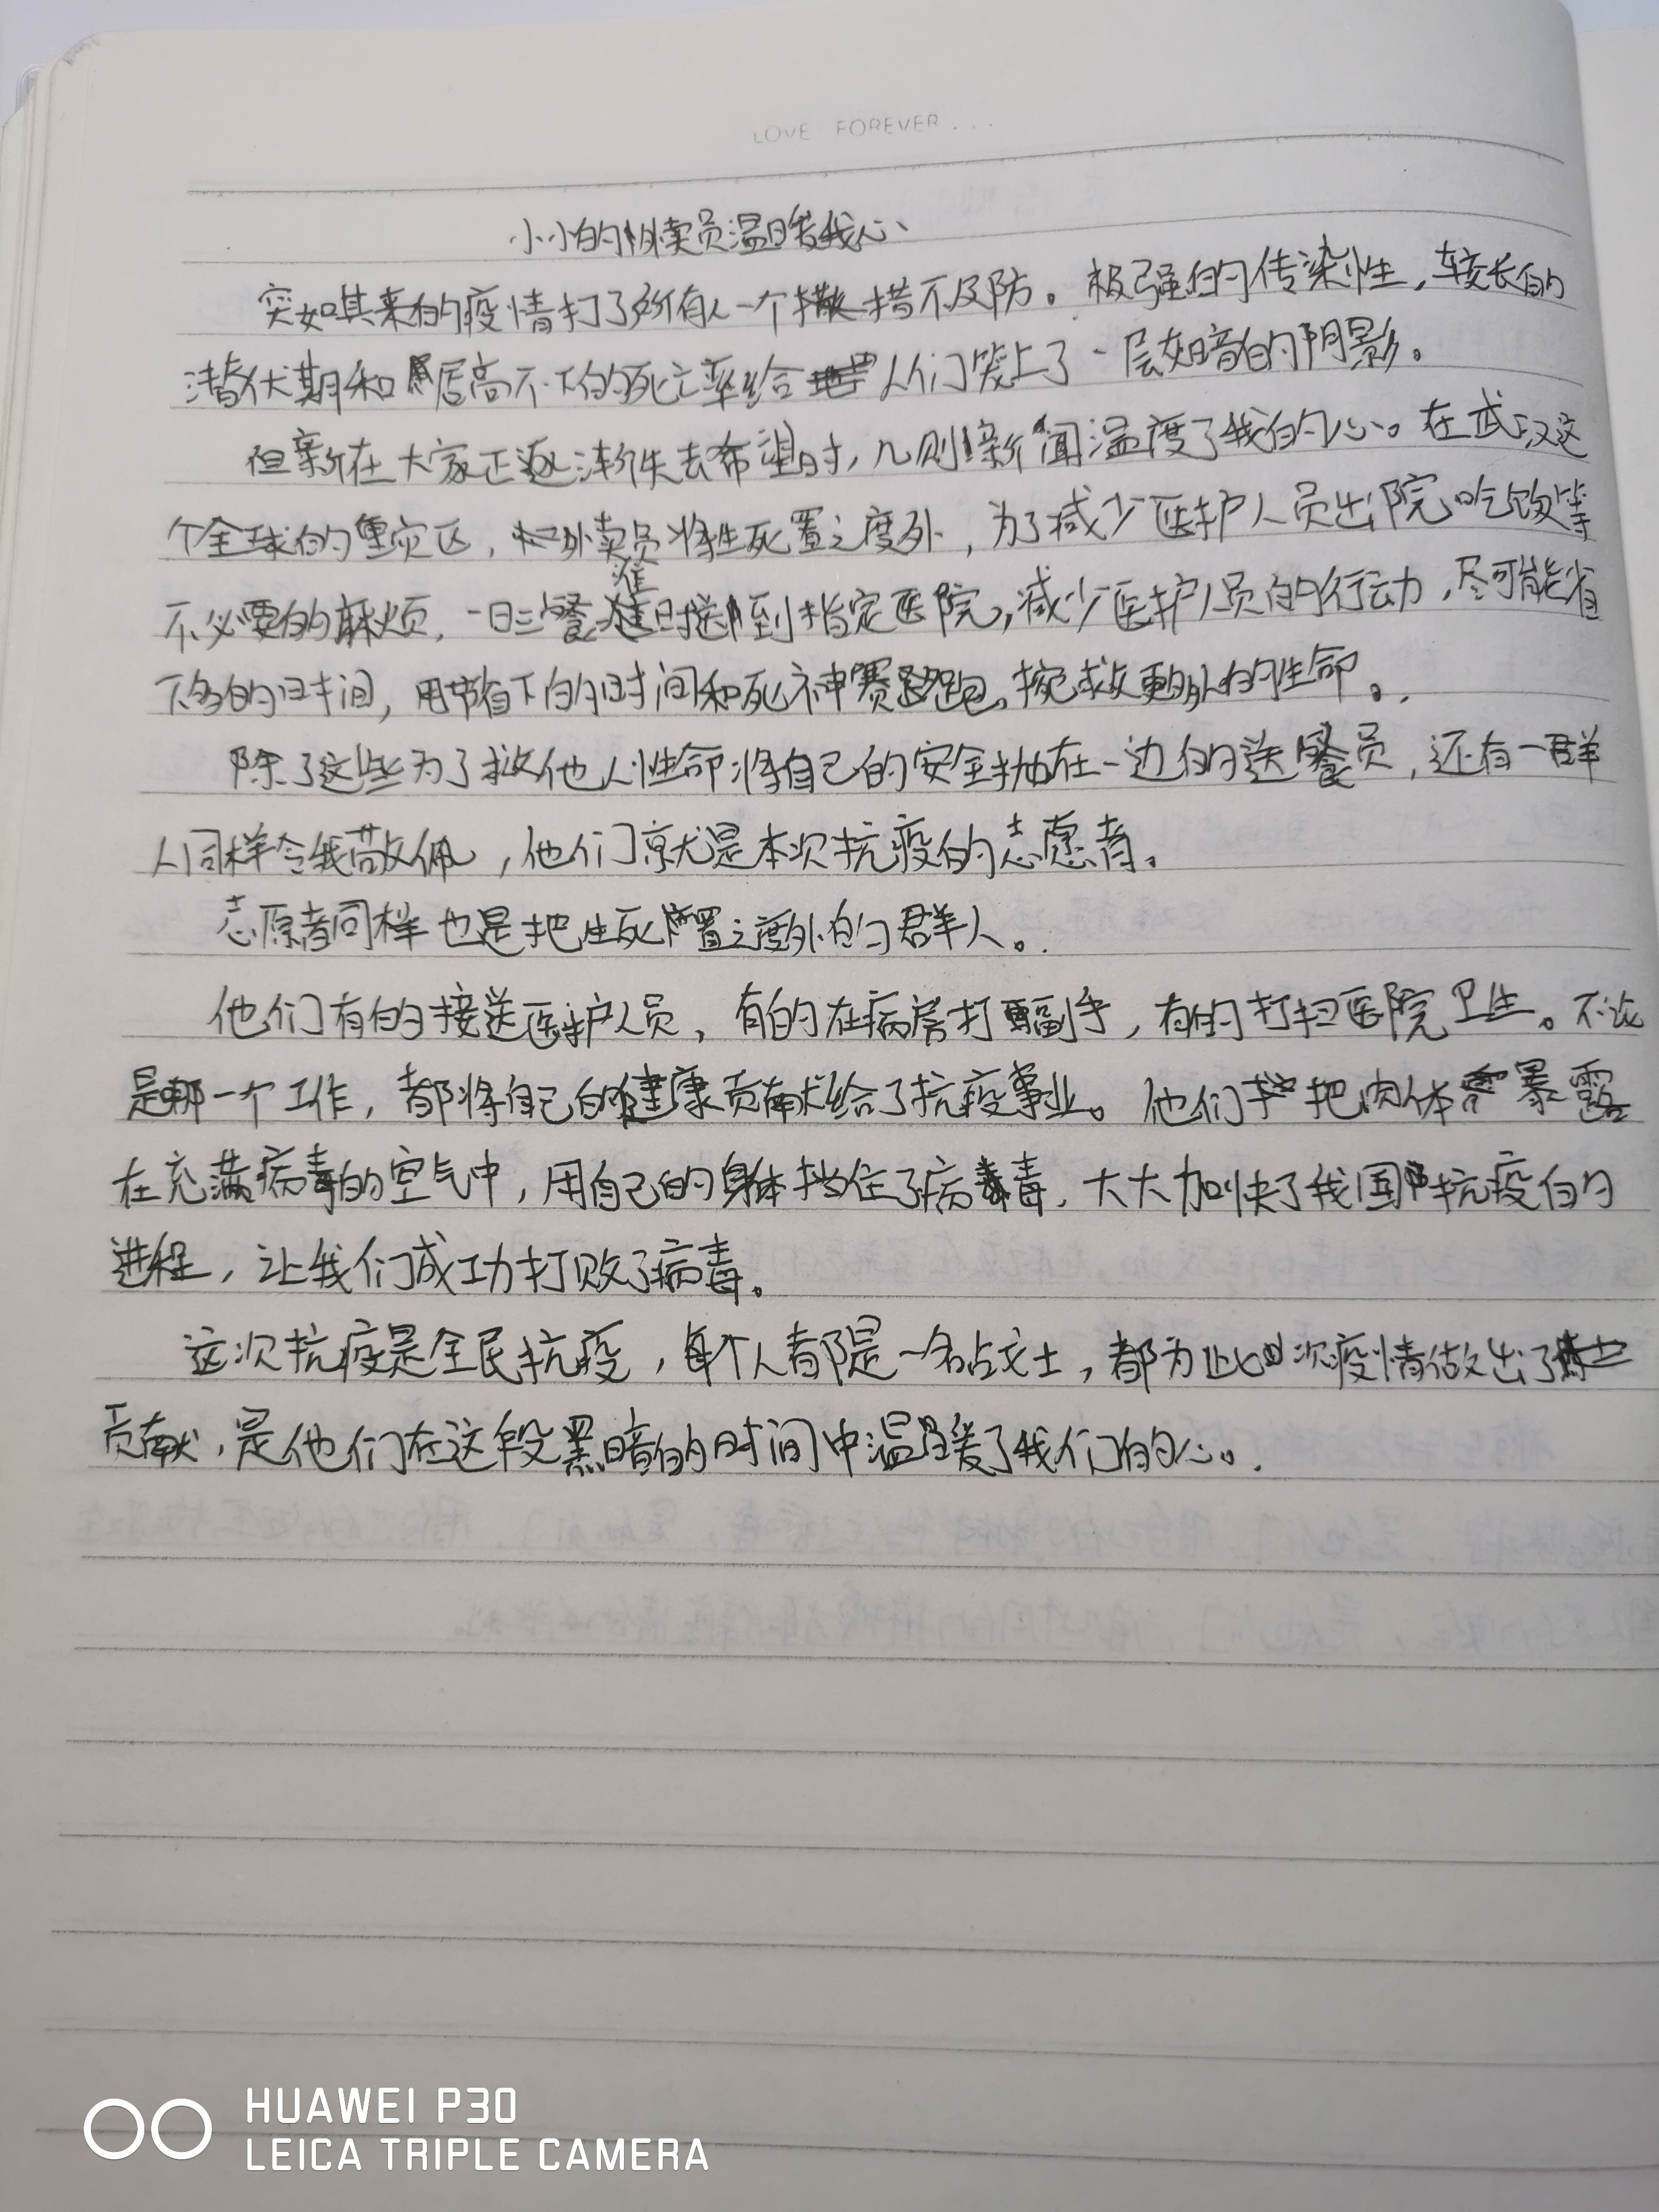 LOVE FOREVER...
小小的外卖员温暖我心
突如其来的疫情打了所有人一个措不及防。极强的传染性,较长的
潜伏期和居高不下的死亡率给人们笼上了一层如暗的阴影。
但在大家正逐渐失去希望时,几则新闻温度了我的心。在武汉这
个全球的重灾区,外卖员将生死置之度外,为了减少医护人员出院吃饭等
不必要的麻烦,一日三餐准时送到指定医院,减少医护人员的行动,尽可能省
下多的时间,用节省下的时间和死神赛跑,挽救更多人的生命。
除了这些为了救他人性命将自己的安全抛在一边的送餐员,还有一群
人同样令我敬佩,他们就是本次抗疫的志愿者。
志愿者同样也是把生死置之度外的群人。
他们有的接送医护人员,有的在病房打副手,有的打扫医院卫生。不论
是哪一个工作,都将自己的健康贡献给了抗疫事业。他们把肉体暴露
在充满病毒的空气中,用自己的身体挡住了病毒,大大加快了我国抗疫的
进程,让我们成功打败了病毒。
这次抗疫是全民抗疫,每个人都是一名战士,都为此次疫情做出了
贡献,是他们在这段黑暗的时间中温暖了我们的心。
HUAWEI P30
LEICA TRIPLE CAMERA